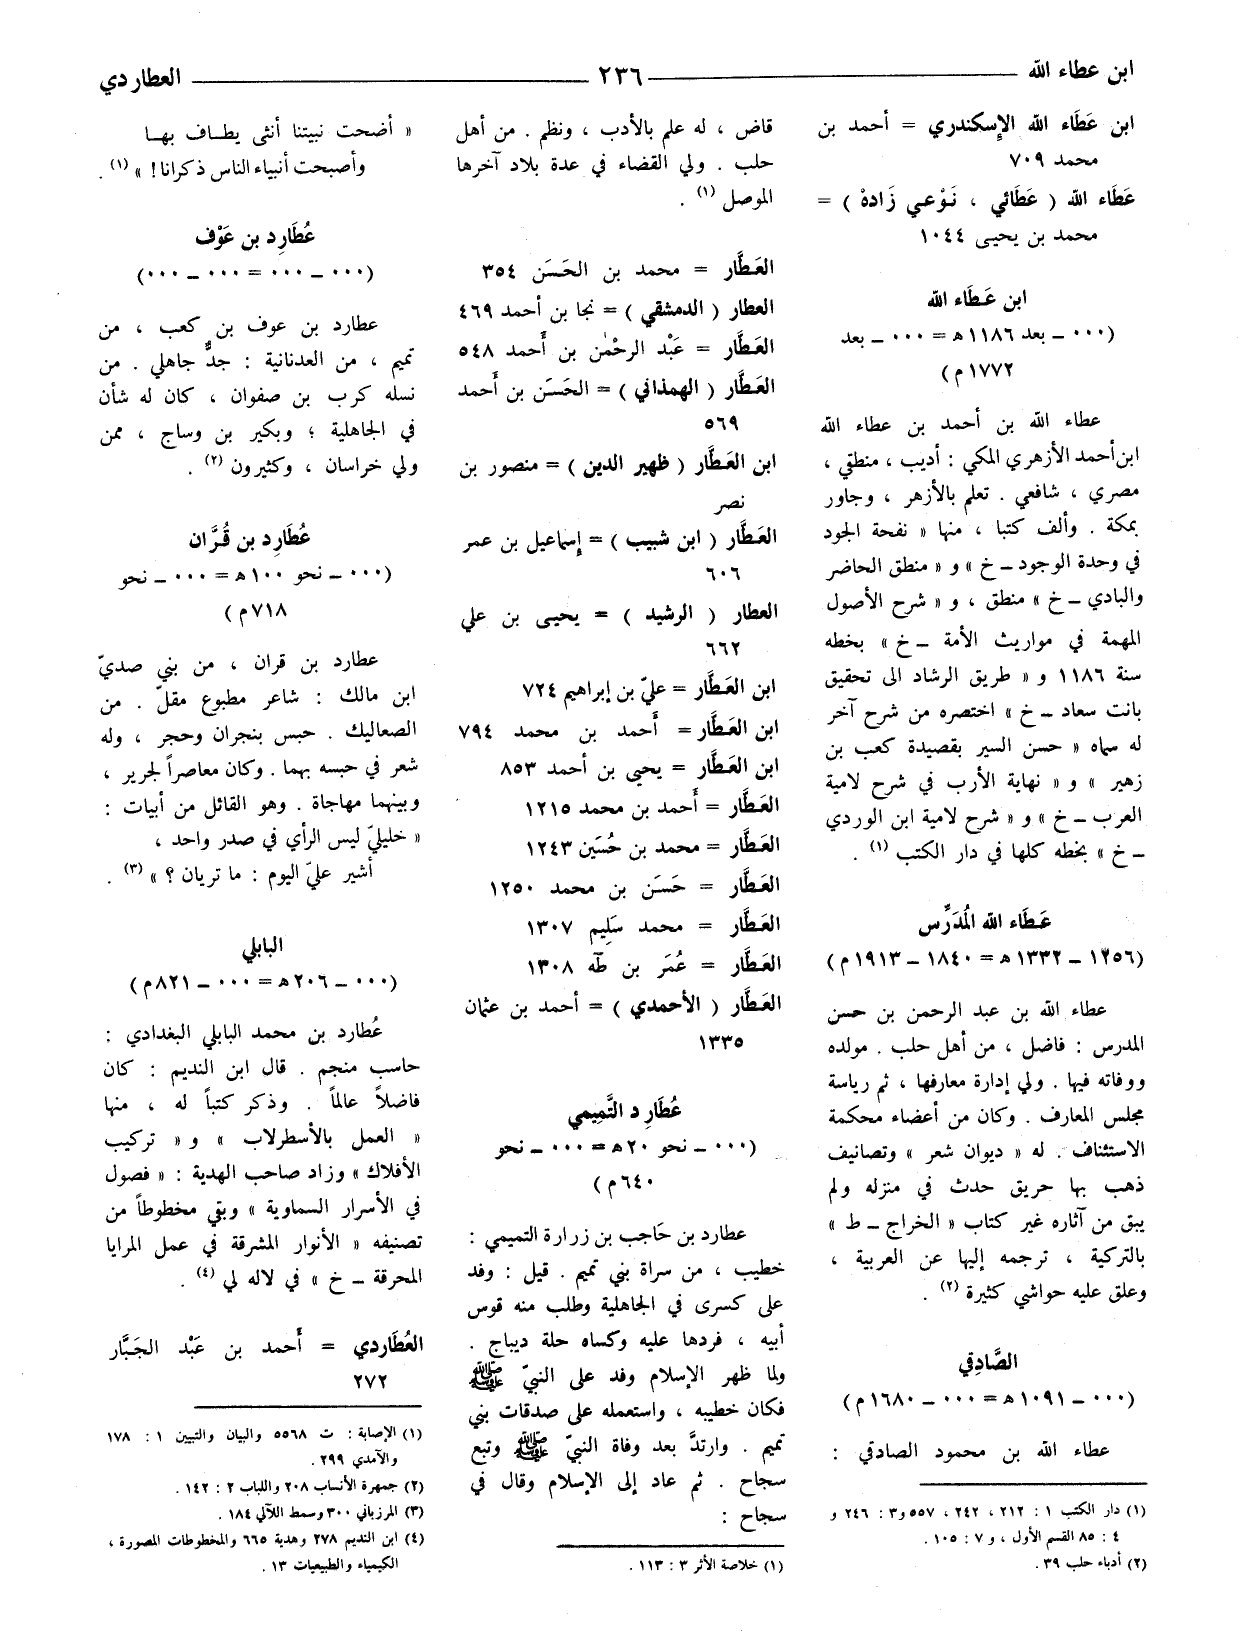 ابن عطاء الله ٢٣٦ العطاردي
ابن عَطَاء الله الإِسكندري = أحمد بن
محمد ٧٠٩
عَطَاء الله ( عَطَائي ، نَوْعي زَادهْ ) =
محمد بن يحيى ١٠٤٤
ابن عَطَاء الله
(٠٠٠ ـ بعد ١١٨٦ هـ = ٠٠٠ ـ بعد
١٧٧٢ م)
عطاء الله بن أحمد بن عطاء الله
ابن أحمد الأزهري المكي : أديب ، منطقي ،
مصري ، شافعي . تعلم بالأزهر ، وجاور
بمكة . وألف كتبا ، منها « نفحة الجود
في وحدة الوجود ـ خ » و « منطق الحاضر
والبادي ـ خ » منطق ، و « شرح الأصول
المهمة في مواريث الأمة ـ خ » بخطه
سنة ١١٨٦ و « طريق الرشاد الى تحقيق
بانت سعاد ـ خ » اختصره من شرح آخر
له سماه « حسن السير بقصيدة كعب بن
زهير » و « نهاية الأرب في شرح لامية
العرب ـ خ » و « شرح لامية ابن الوردي
ـ خ » بخطه كلها في دار الكتب (١) .
عَطَاء الله المُدَرِّس
(١٢٥٦ ـ ١٣٣٢ هـ = ١٨٤٠ ـ ١٩١٣ م)
عطاء الله بن عبد الرحمن بن حسن
المدرس : فاضل ، من أهل حلب . مولده
ووفاته فيها . ولي إدارة معارفها ، ثم رياسة
مجلس المعارف . وكان من أعضاء محكمة
الاستئناف . له « ديوان شعر » وتصانيف
ذهب بها حريق حدث في منزله ولم
يبق من آثاره غير كتاب « الخراج ـ ط »
بالتركية ، ترجمه إليها عن العربية ،
وعلق عليه حواشي كثيرة (٢) .
الصَّادِقي
(٠٠٠ ـ ١٠٩١ هـ = ٠٠٠ ـ ١٦٨٠ م)
عطاء الله بن محمود الصادقي :
(١) دار الكتب ١ : ٢١٢ ، ٢٤٢ ، ٥٥٧ و٣ : ٢٤٦ و
٤ : ٨٥ القسم الأول ، و ٧ : ١٠٥ .
(٢) أدباء حلب ٣٩ .
قاض ، له علم بالأدب ، ونظم . من أهل
حلب . ولي القضاء في عدة بلاد آخرها
الموصل (١) .
العَطَّار = محمد بن الحَسَن ٣٥٤
العطار ( الدمشقي ) = نجا بن أحمد ٤٦٩
العَطَّار = عَبْد الرحْمٰن بن أَحمد ٥٤٨
العَطَّار ( الهمذاني ) = الحَسَن بن أَحمد
٥٦٩
ابن العَطَّار ( ظهير الدين ) = منصور بن
نصر
العَطَّار ( ابن شبيب ) = إسماعيل بن عمر
٦٠٦
العطار ( الرشيد ) = يحيى بن علي
٦٦٢
ابن العَطَّار = عليّ بن إبراهيم ٧٢٤
ابن العَطَّار = أَحمد بن محمد ٧٩٤
ابن العَطَّار = يحيى بن أحمد ٨٥٣
العَطَّار = أَحمد بن محمد ١٢١٥
العَطَّار = محمد بن حُسَين ١٢٤٣
العَطَّار = حَسَن بن محمد ١٢٥٠
العَطَّار = محمد سَلِيم ١٣٠٧
العَطَّار = عُمَر بن طٰه ١٣٠٨
العَطَّار ( الأحمدي ) = أحمد بن عثمان
١٣٣٥
عُطَارِد التَّمِيمي
(٠٠٠ ـ نحو ٢٠ هـ = ٠٠٠ ـ نحو
٦٤٠ م)
عطارد بن حَاجب بن زرارة التميمي :
خطيب ، من سراة بني تميم . قيل : وفد
على كسرى في الجاهلية وطلب منه قوس
أبيه ، فردها عليه وكساه حلة ديباج .
ولما ظهر الإسلام وفد على النبيّ ﷺ
فكان خطيبه ، واستعمله على صدقات بني
تميم . وارتدَّ بعد وفاة النبيّ ﷺ وتبع
سجاح . ثم عاد إلى الإسلام وقال في
سجاح :
(١) خلاصة الأثر ٣ : ١١٣ .
« أضحت نبيتنا أنثى يطـاف بهـا
وأصبحت أنبياء الناس ذكرانا ! » (١) .
عُطَارِد بن عَوْف
(٠٠٠ ـ ٠٠٠ = ٠٠٠ ـ ٠٠٠)
عطارد بن عوف بن كعب ، من
تميم ، من العدنانية : جدٌّ جاهلي . من
نسله كرب بن صفوان ، كان له شأن
في الجاهلية ؛ وبكير بن وساج ، ممن
ولي خراسان ، وكثيرون (٢) .
عُطَارِد بن قُرَّان
(٠٠٠ ـ نحو ١٠٠ هـ = ٠٠٠ ـ نحو
٧١٨ م)
عطارد بن قران ، من بني صديّ
ابن مالك : شاعر مطبوع مقلّ . من
الصعاليك . حبس بنجران وحجر ، وله
شعر في حبسه بهما . وكان معاصراً لجرير ،
وبينهما مهاجاة . وهو القائل من أبيات :
« خليليّ ليس الرأي في صدر واحد ،
أشير عليّ اليوم : ما تريان ؟ » (٣) .
البابلي
(٠٠٠ ـ ٢٠٦ هـ = ٠٠٠ ـ ٨٢١ م)
عُطارد بن محمد البابلي البغدادي :
حاسب منجم . قال ابن النديم : كان
فاضلاً عالماً . وذكر كتباً له ، منها
« العمل بالأسطرلاب » و « تركيب
الأفلاك » وزاد صاحب الهدية : « فصول
في الأسرار السماوية » وبقي مخطوطاً من
تصنيفه « الأنوار المشرقة في عمل المرايا
المحرقة ـ خ » في لاله لي (٤) .
العُطَاردي = أَحمد بن عَبْد الجَبَّار
٢٧٢
(١) الإصابة : ت ٥٥٦٨ والبيان والتبيين ١ : ١٧٨
والآمدي ٢٩٩ .
(٢) جمهرة الأنساب ٢٠٨ واللباب ٢ : ١٤٢ .
(٣) المرزباني ٣٠٠ وسمط اللآلي ١٨٤ .
(٤) ابن النديم ٢٧٨ وهدية ٦٦٥ والمخطوطات المصورة ،
الكيمياء والطبيعيات ١٣ .